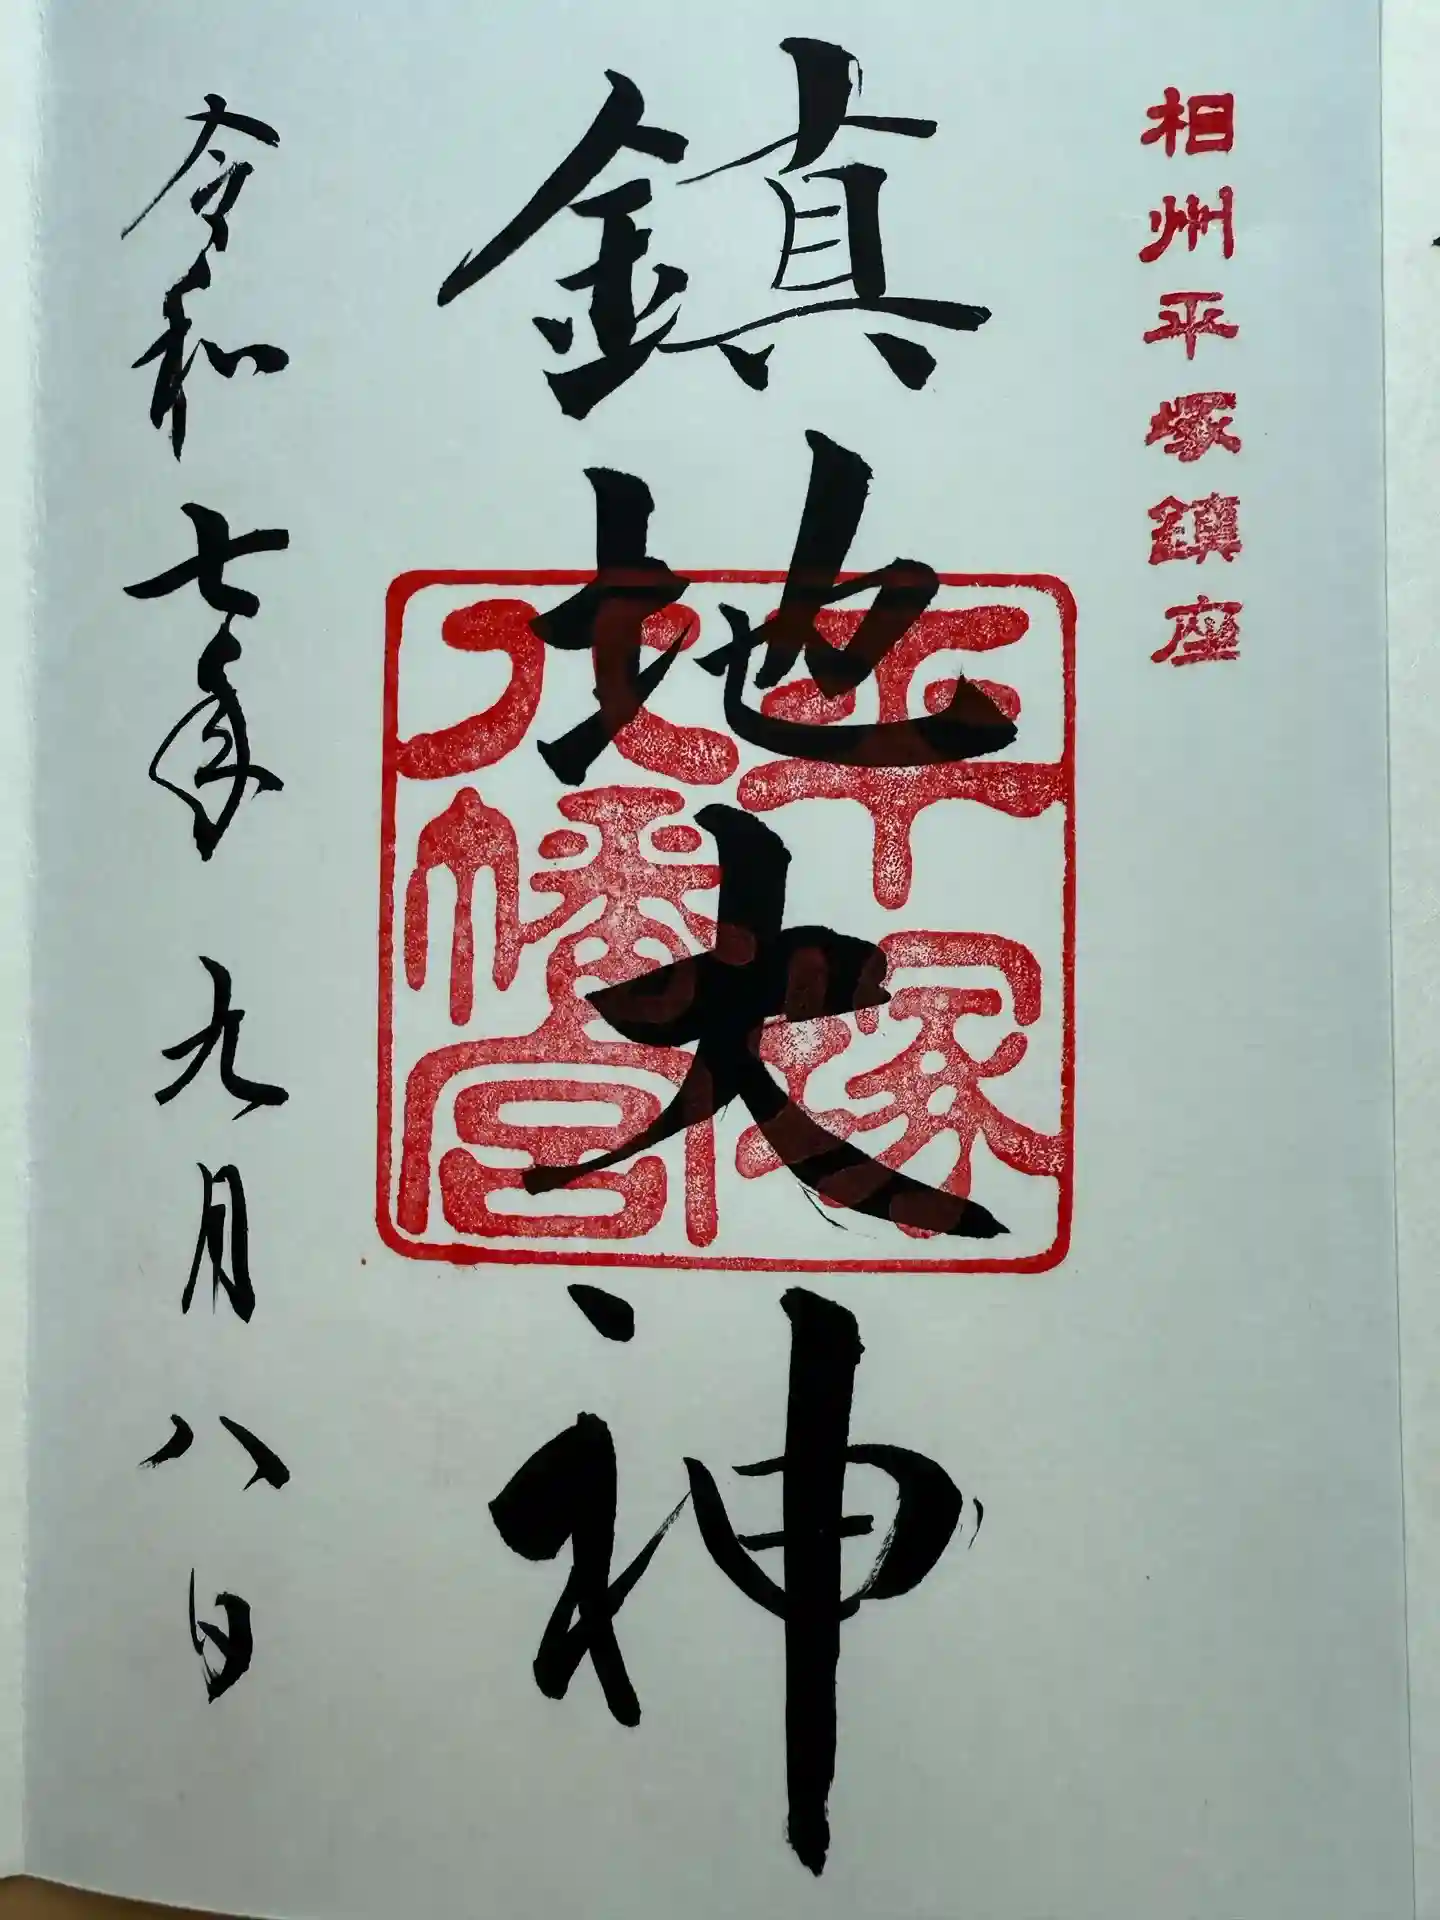 相州平塚鎮座
鎮地大神
平塚
八幡宮
令和七年九月八日